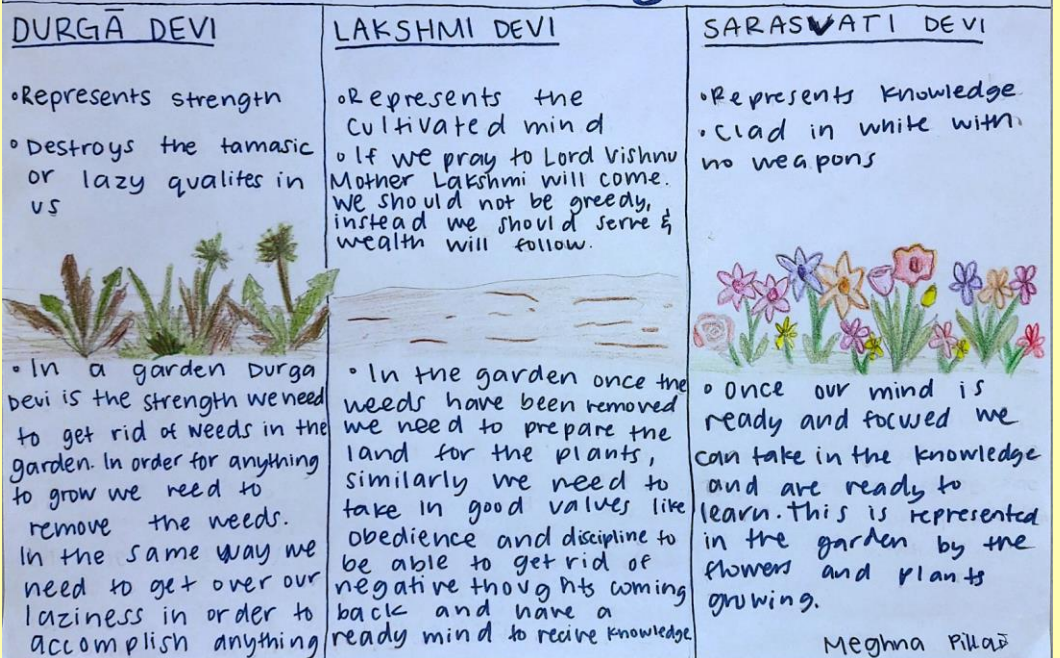 DURGĀ DEVI
•Represents strength
•Destroys the tamasic
or lazy qualites in
us
•In a garden Durga
Devi is the strength we need
to get rid of weeds in the
garden. In order for anything
to grow we need to
remove the weeds.
In the same way we
need to get over our
laziness in order to
accomplish anything
LAKSHMI DEVI
•Represents the
cultivated mind
•If we pray to Lord Vishnu
Mother Lakshmi will come.
We should not be greedy,
instead we should serve &
wealth will follow.
•In the garden once the
weeds have been removed
we need to prepare the
land for the plants,
similarly we need to
take in good values like
obedience and discipline to
be able to get rid of
negative thoughts coming
back and have a
ready mind to recive knowledge
SARASVATI DEVI
•Represents knowledge
•Clad in white with
no weapons
•Once our mind is
ready and focused we
can take in the knowledge
and are ready to
learn. This is represented
in the garden by the
flowers and plants
growing.
Meghna Pillai